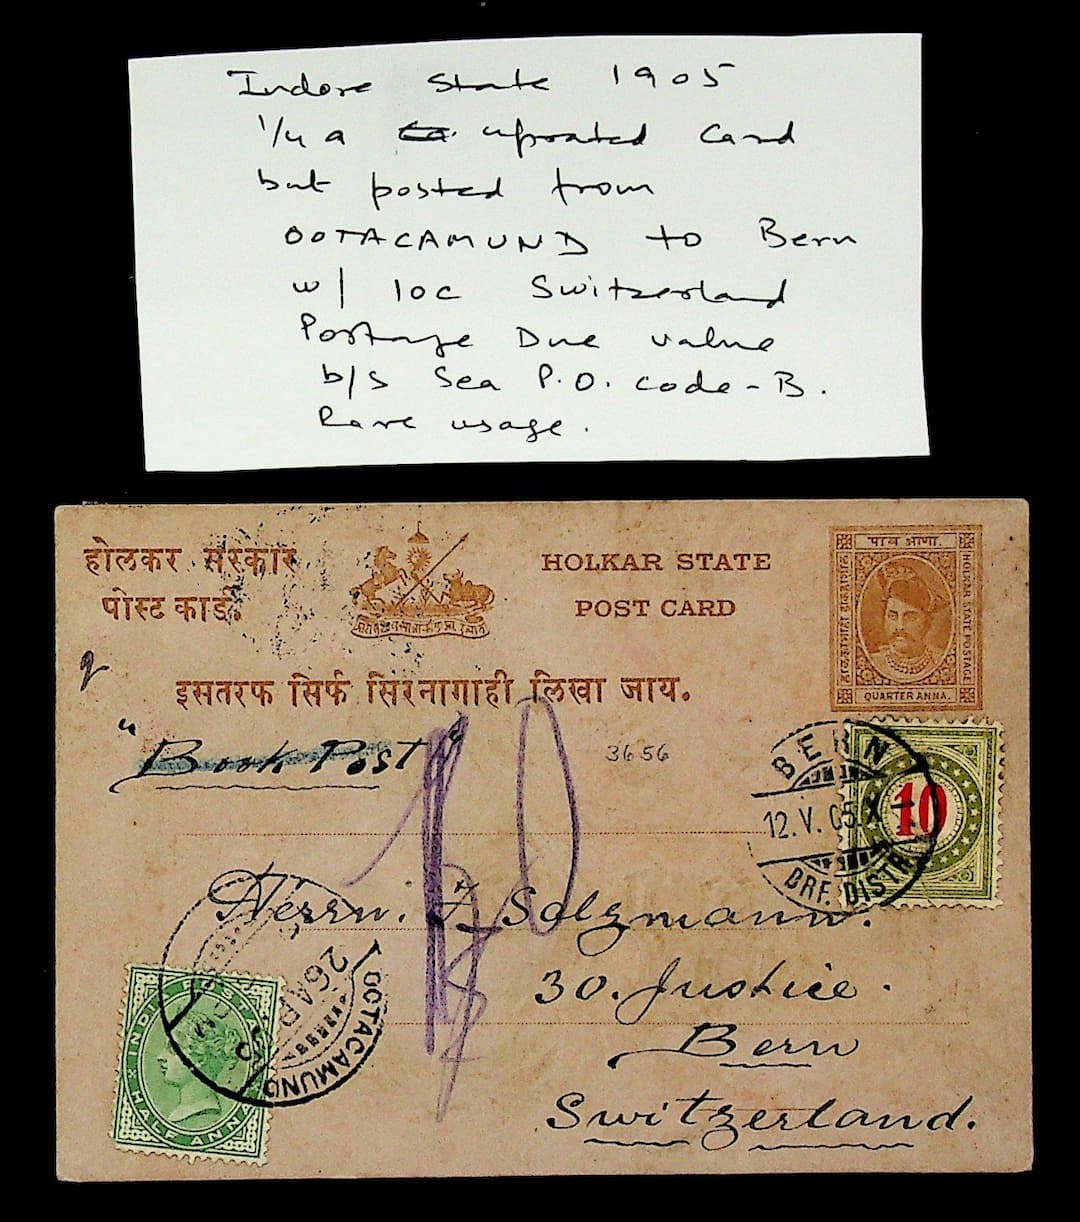 Indore State 1905
1/4 a uprated Card
but posted from
OOTACAMUND to Bern
w/ 10c Switzerland
Postage Due value
b/s Sea P.O. code-B.
Rare usage.
होलकर सरकार
पोस्ट कार्ड.
HOLKAR STATE
POST CARD
पाव आणा.
HOLKAR STATE POSTAGE
QUARTER ANNA.
इसतरफ सिर्फ सिरनागाही लिखा जाय.
"Book Post"
3656
BERN
12.V.05.X-
BRF. DISTR.
10
Herrn. J. Salzmann.
30. Justice.
Bern
Switzerland.
OOTACAMUND
26 AP
INDIA
HALF ANNA